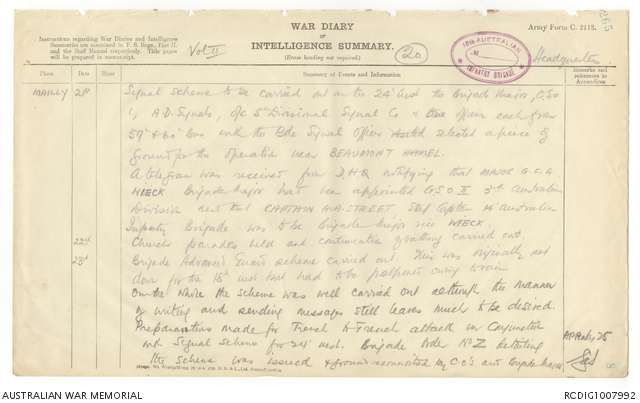 WAR DIARY
OF
INTELLIGENCE SUMMARY.
(Erase heading not required.)
Army Form C. 2118.
Instructions regarding War Diaries and Intelligence
Summaries are contained in F. S. Regs., Part II.
and the Staff Manual respectively. Title pages
will be prepared in manuscript.
Vol II
20
15TH AUSTRALIAN
INFANTRY BRIGADE
Headquarters
Place Date Hour Summary of Events and Information Remarks and references to Appendices
MAILLY 21st Signal scheme to be carried out on the 24th inst the Brigade Major, G.S.O
1, A.D. Signals, O/C 5th Divisional Signal Co & One officer each from
59th & 60th Bns with the Bde Signal Officer selected a piece of
ground for the operation near BEAUMONT HAMEL.
A telegram was received from D.H.Q notifying that MAJOR G.C.G.
WIECK Brigade Major had been appointed G.S.O. II 3rd Australian
Division and that CAPTAIN H.A. STREET, Staff Captain 14 Australian
Infantry Brigade was to be Brigade Major vice WIECK.
22nd Church parades held and continuation of training carried out.
23rd Brigade Advanced Guard scheme carried out. This was originally set
down for the 18th inst but had to be postponed owing to rain.
On the whole the scheme was well carried out although the manner
of writing and sending messages still leaves much to be desired.
Preparations made for Trench to Trench attack in conjunction
with Signal Scheme for 24th inst. Brigade Order No Z detailing
the scheme was issued & ground reconnoitred by C.O's and Brigade Major
AUSTRALIAN WAR MEMORIAL
RCDIG1007992